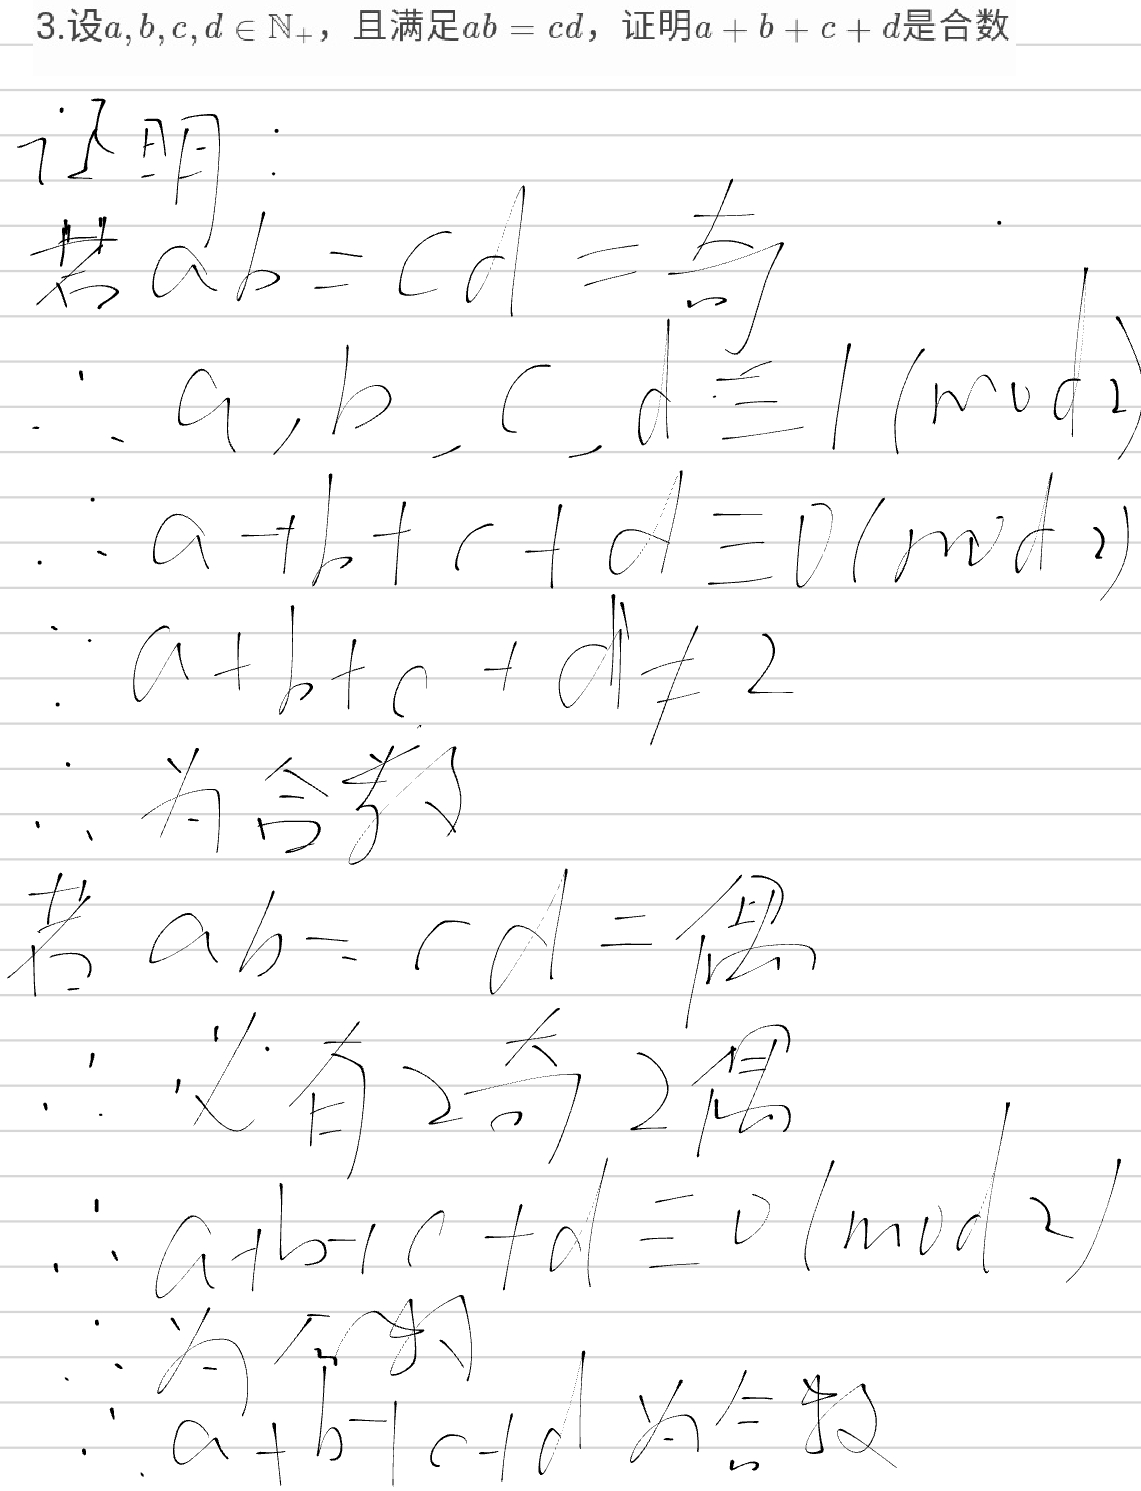 3.设a, b, c, d ∈ ℕ₊，且满足ab = cd，证明a + b + c + d是合数
证明:
若ab=cd=奇
∴a,b,c,d≡1(mod2)
∴a+b+c+d≡0(mod2)
∵a+b+c+d≠2
∴为合数
若ab=cd=偶
∴必有2奇2偶
∴a+b+c+d≡0(mod2)
∴为合数
∴a+b+c+d为合数